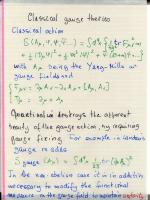 Classical gauge theories
Classical action
S(Aμ, Ψ, Ψ̄, ...) = ∫d⁴x
with Aμ being the Yang-Mills or
gauge fields and
Fμν = ∂μAν − ∂νAμ + [Aμ, Aν]
Quantization destroys the apparent
beauty of the gauge action, by requiring
gauge fixing. For example in
gauge we add
S gauge (Aμ) = ∫d⁴x
In the non abelian case it is in addition
necessary to modify the functional
measure in the gauge field to maintain unitarity